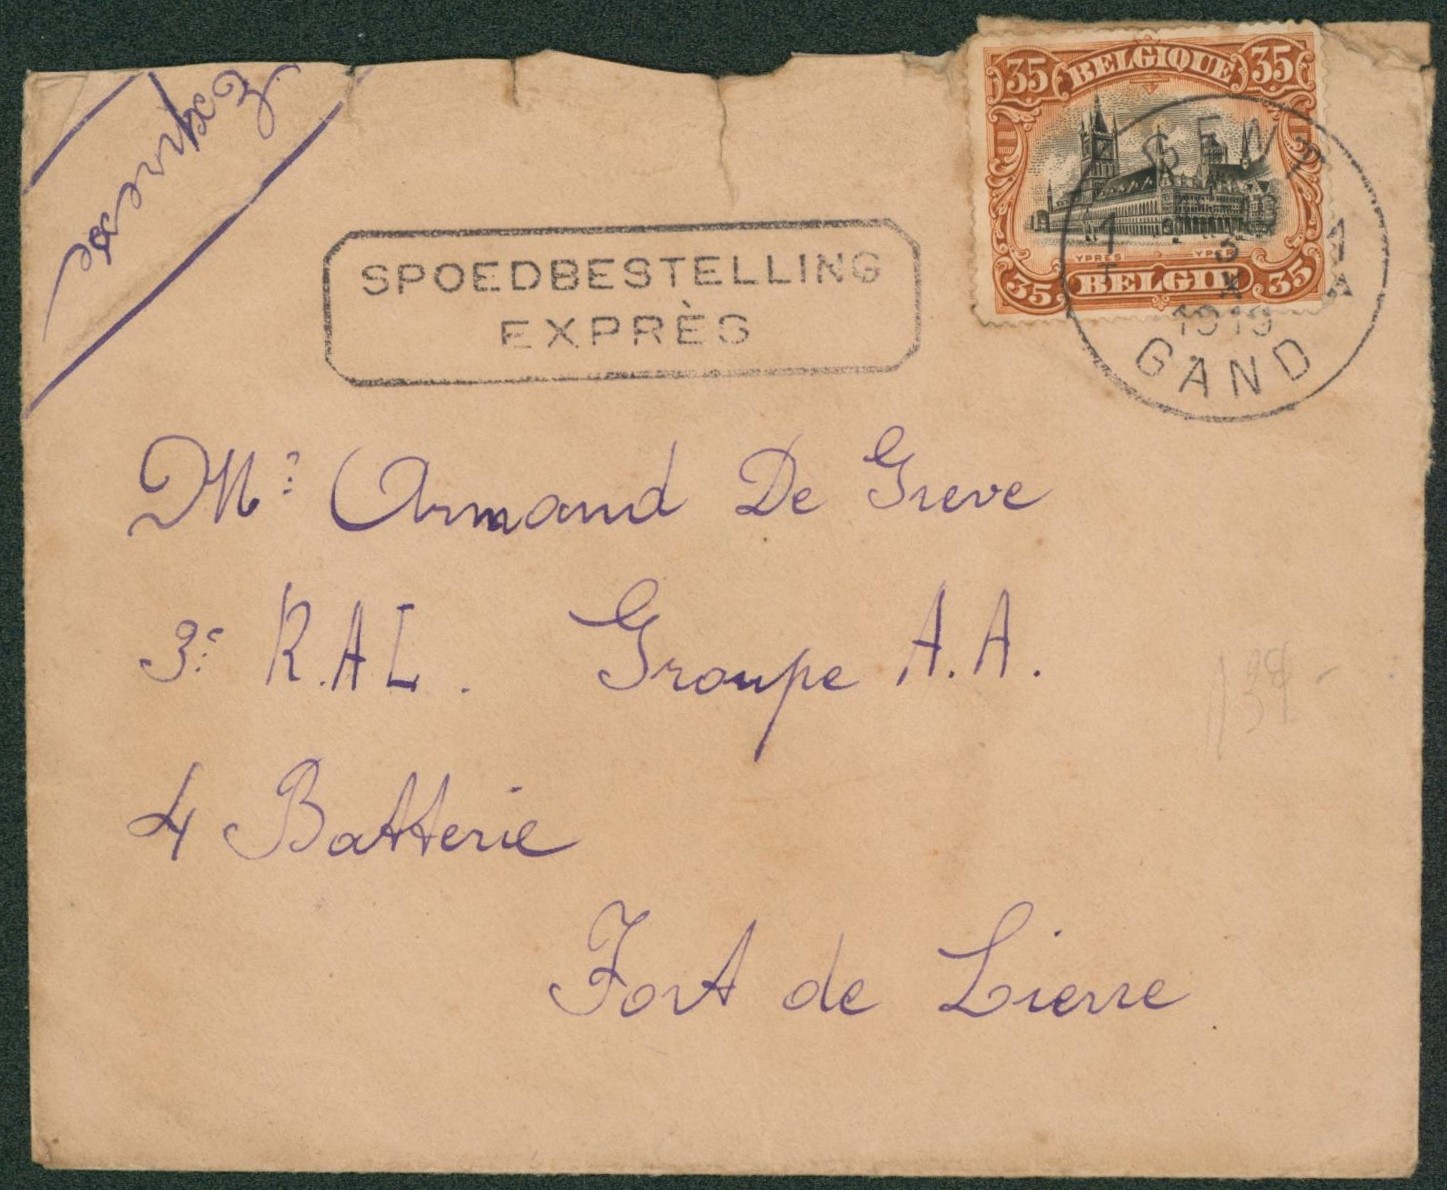 Expresse
SPOEDBESTELLING
EXPRÈS
35 BELGIQUE 35
YPRES YPER
35 BELGIË 35
GENT
1 3 1
X
1919
GAND
Mr Armand De Greve
3e R.A.L. Groupe A.A.
4 Batterie
Fort de Lierre